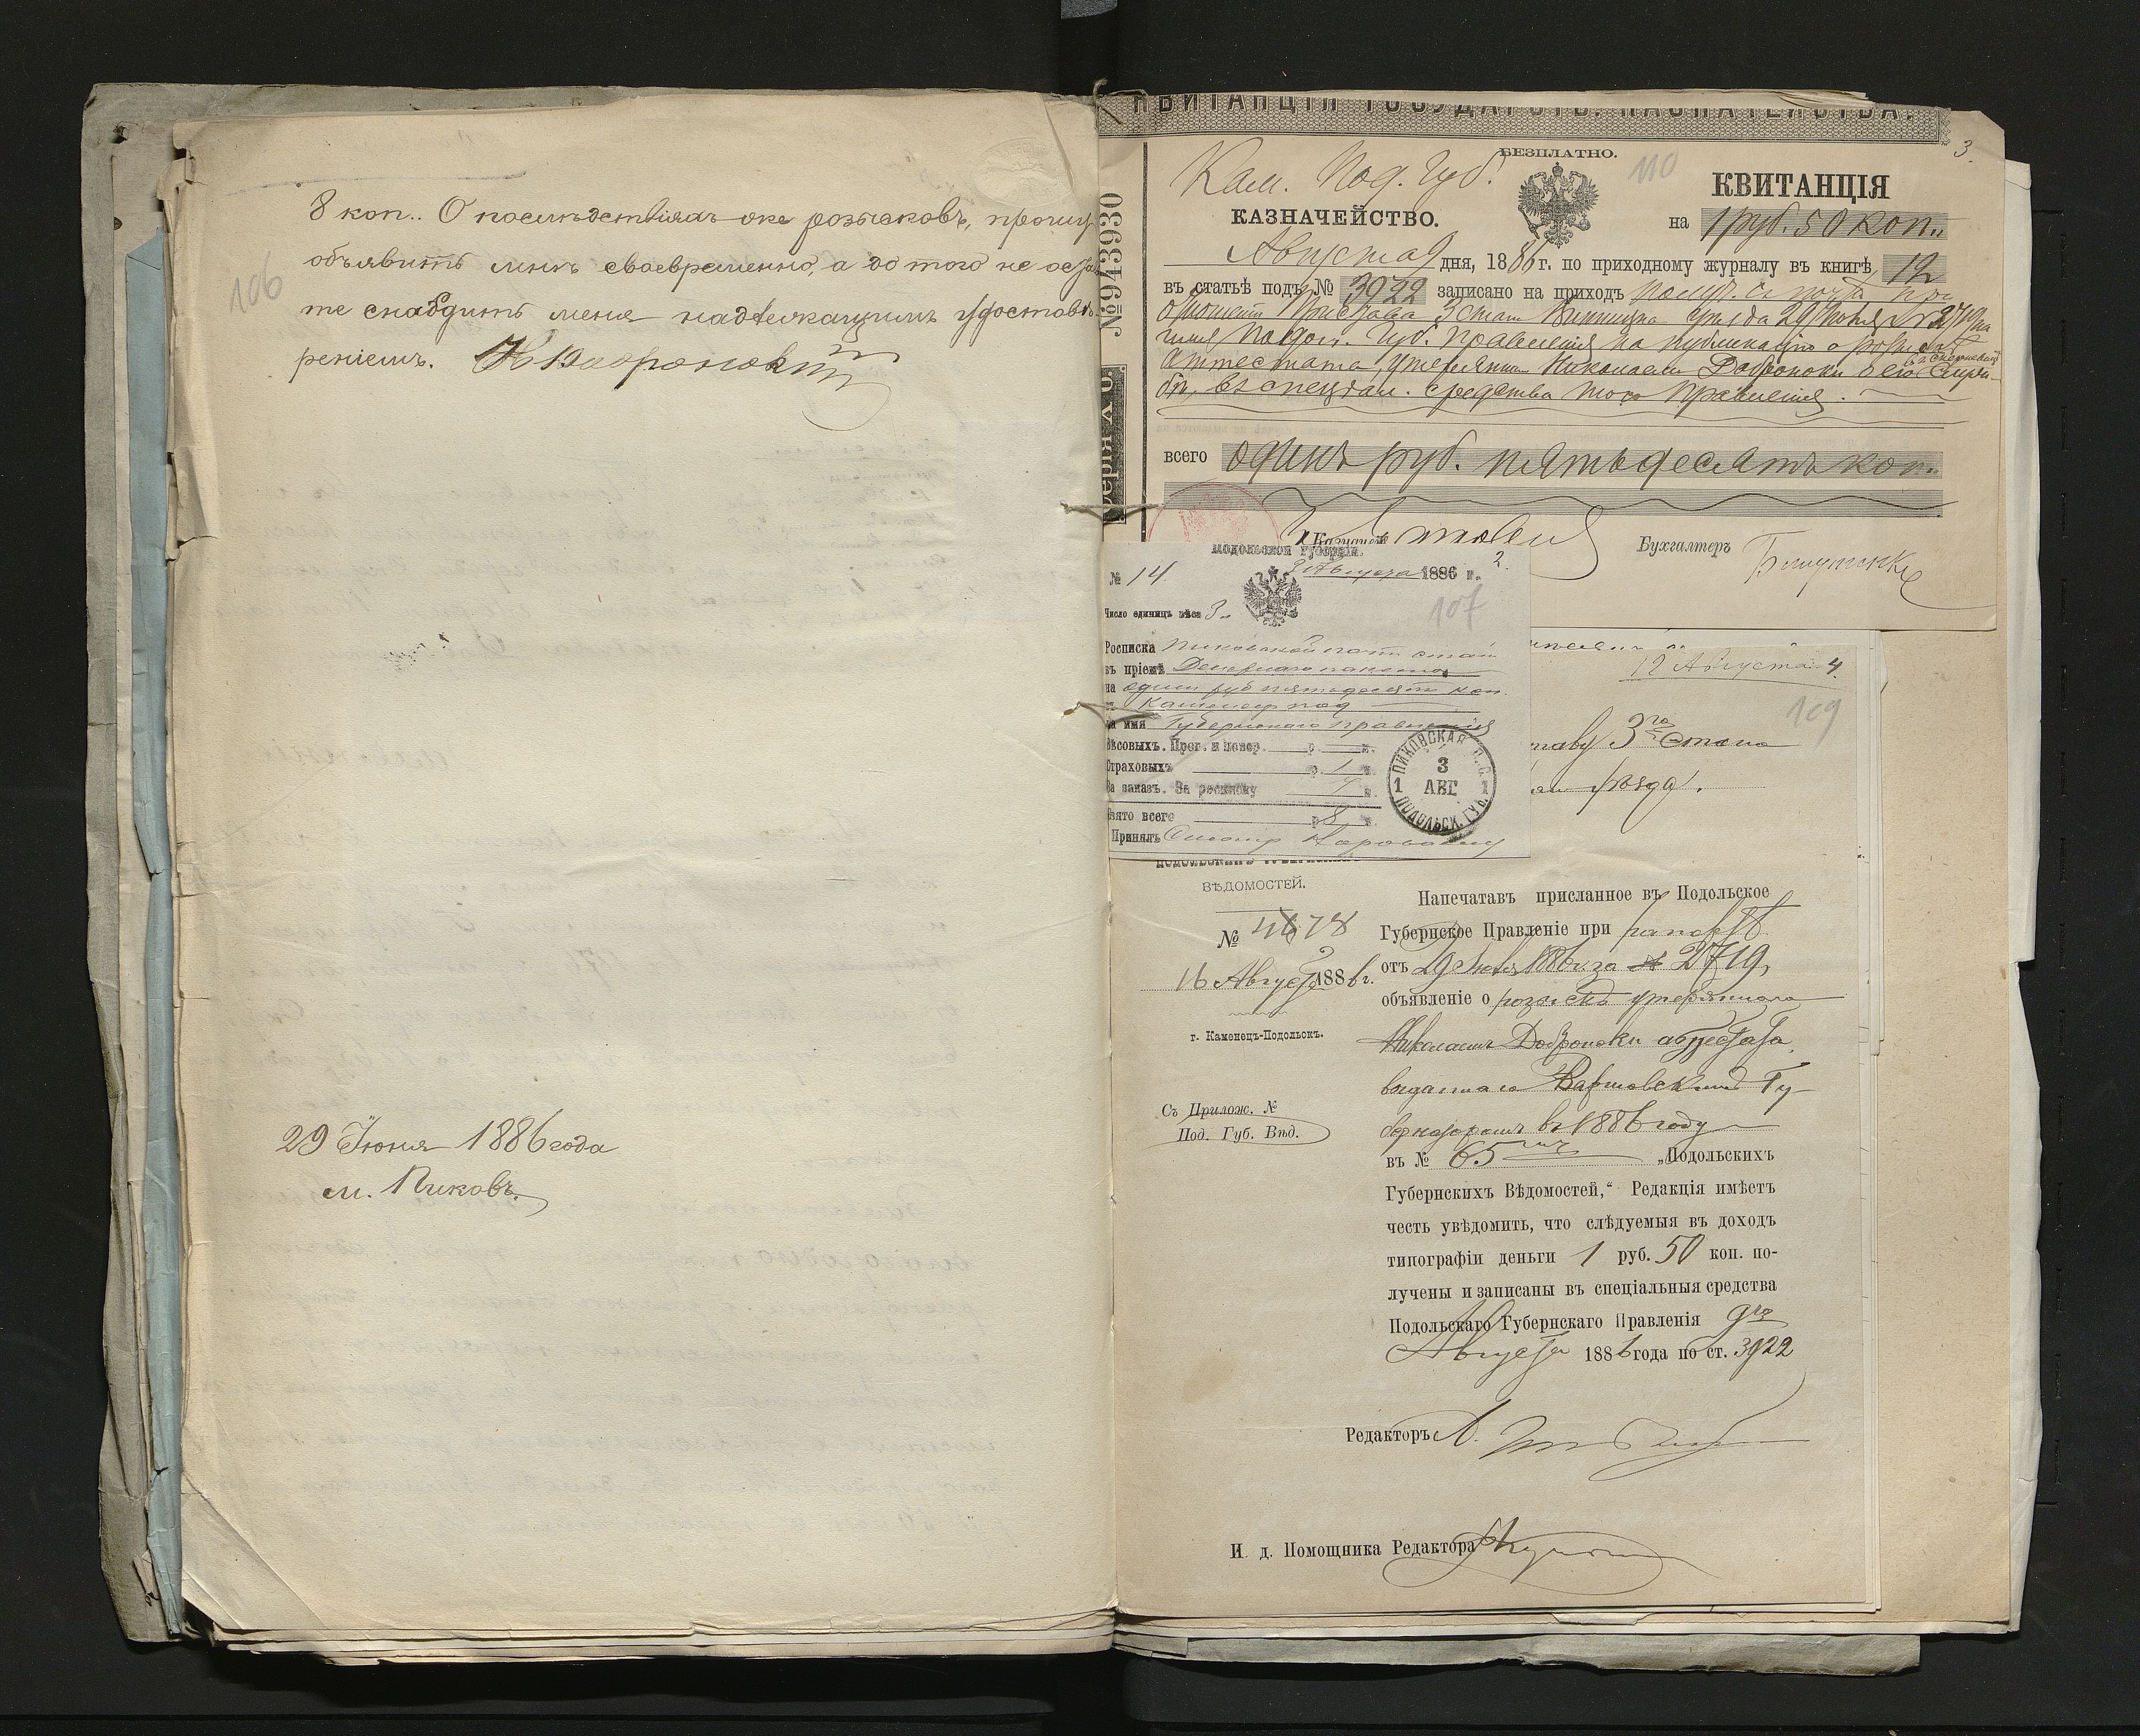 106
8 коп.. О послѣдствіяхъ же розысковъ, прошу
объявить мнѣ своевременно, а до того не остав
те снабдить меня надлежащимъ удостовѣ
реніемъ.
29 Іюня 1886 года
м. Пиковъ.
КВИТАНЦІЯ ГОСУДАРСТ. КАЗНАЧЕЙСТВА.
3.
БЕЗПЛАТНО.
110
Кам. Под. Губ.
КАЗНАЧЕЙСТВО.
КВИТАНЦІЯ
на 1 руб. 50 коп.
№ 943930
Серія
Августа 9 дня, 1886 г. по приходному журналу въ книгѣ 12
въ статьѣ подъ № 3922 записано на приходъ получ. съ почты при
Пристава 3 стана Винницк. уѣзда 29 Іюня № 2719 на
имя Подол. Губ. Правленія на публикацію о розыскѣ
аттестата, утеряннаго Николаемъ
въ спеціал. средства того Правленія.
всего одинъ руб. пятьдесятъ коп.
Казначей
Бухгалтеръ
Подольской губерніи.
2.
№ 14.
3 Августа 1886 г.
107
Число единицъ вѣса 3.
Росписка Пиковской почт. стан
въ пріемѣ Денежнаго пакета
на одинъ руб пятьдесятъ коп.
въ Каменец под
на имя Губернскаго правленія
Вѣсовыхъ. Прог. и повор. р. к.
Страховыхъ р. 1 к.
За заказ. За росписку
Взято всего р 8 к.
Принялъ
ПИКОВСКАЯ П. С.
1 3 АВГ 1
ПОДОЛЬСК. ГУБ.
12 Августа 4.
109
таву 3го Стана
уѣзда.
ВѢДОМОСТЕЙ.
№ 4678
16 Августа 1886 г.
г. Каменецъ-Подольскъ.
Съ Прилож. №
Под. Губ. Вѣд.
Напечатавъ присланное въ Подольское
Губернское Правленіе при рапортѣ
отъ 29 Іюня 1886 г. за № 2719,
объявленіе о розыскѣ утеряннаго
Николаемъ Добронски аттестата,
выданнаго Варшавскимъ Гу-
бернаторомъ въ 1886 году
въ № 65мъ „Подольскихъ
Губернскихъ Вѣдомостей,“ Редакція имѣетъ
честь увѣдомить, что слѣдуемыя въ доходъ
типографіи деньги 1 руб. 50 коп. по-
лучены и записаны въ спеціальныя средства
Подольскаго Губернскаго Правленія 9го
Августа 1886 года по ст. 3922
Редакторъ
И. д. Помощника Редактора